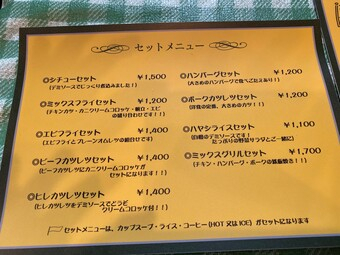 セットメニュー
◎シチューセット ¥1,500
(デミソースでじっくり煮込みました!)
◎ミックスフライセット ¥1,200
(チキンカツ・カニクリームコロッケ・帆立・エビ
の盛り合わせです!!)
◎エビフライセット ¥1,400
(エビフライとプレーンオムレツの組合せです)
◎ビーフカツレツセット ¥1,400
(ビーフカツレツにカニクリームコロッケが
セットになります!)
◎ヒレカツレツセット ¥1,400
(ヒレカツレツをデミソースでどうぞ
クリームコロッケ付!!)
◎ハンバーグセット ¥1,200
(大きめのハンバーグで食べごたえあり!!)
◎ポークカツレツセット ¥1,200
(洋食の定番、大きめのカツ!!)
◎ハヤシライスセット ¥1,100
(自慢のデミソースです!
たっぷりの野菜サラダとご一緒に)
◎ミックスグリルセット ¥1,700
(チキン・ハンバーグ・ポークの鉄板焼き!!)
セットメニューは、カップスープ・ライス・コーヒー(HOT 又は ICE) がセットになります